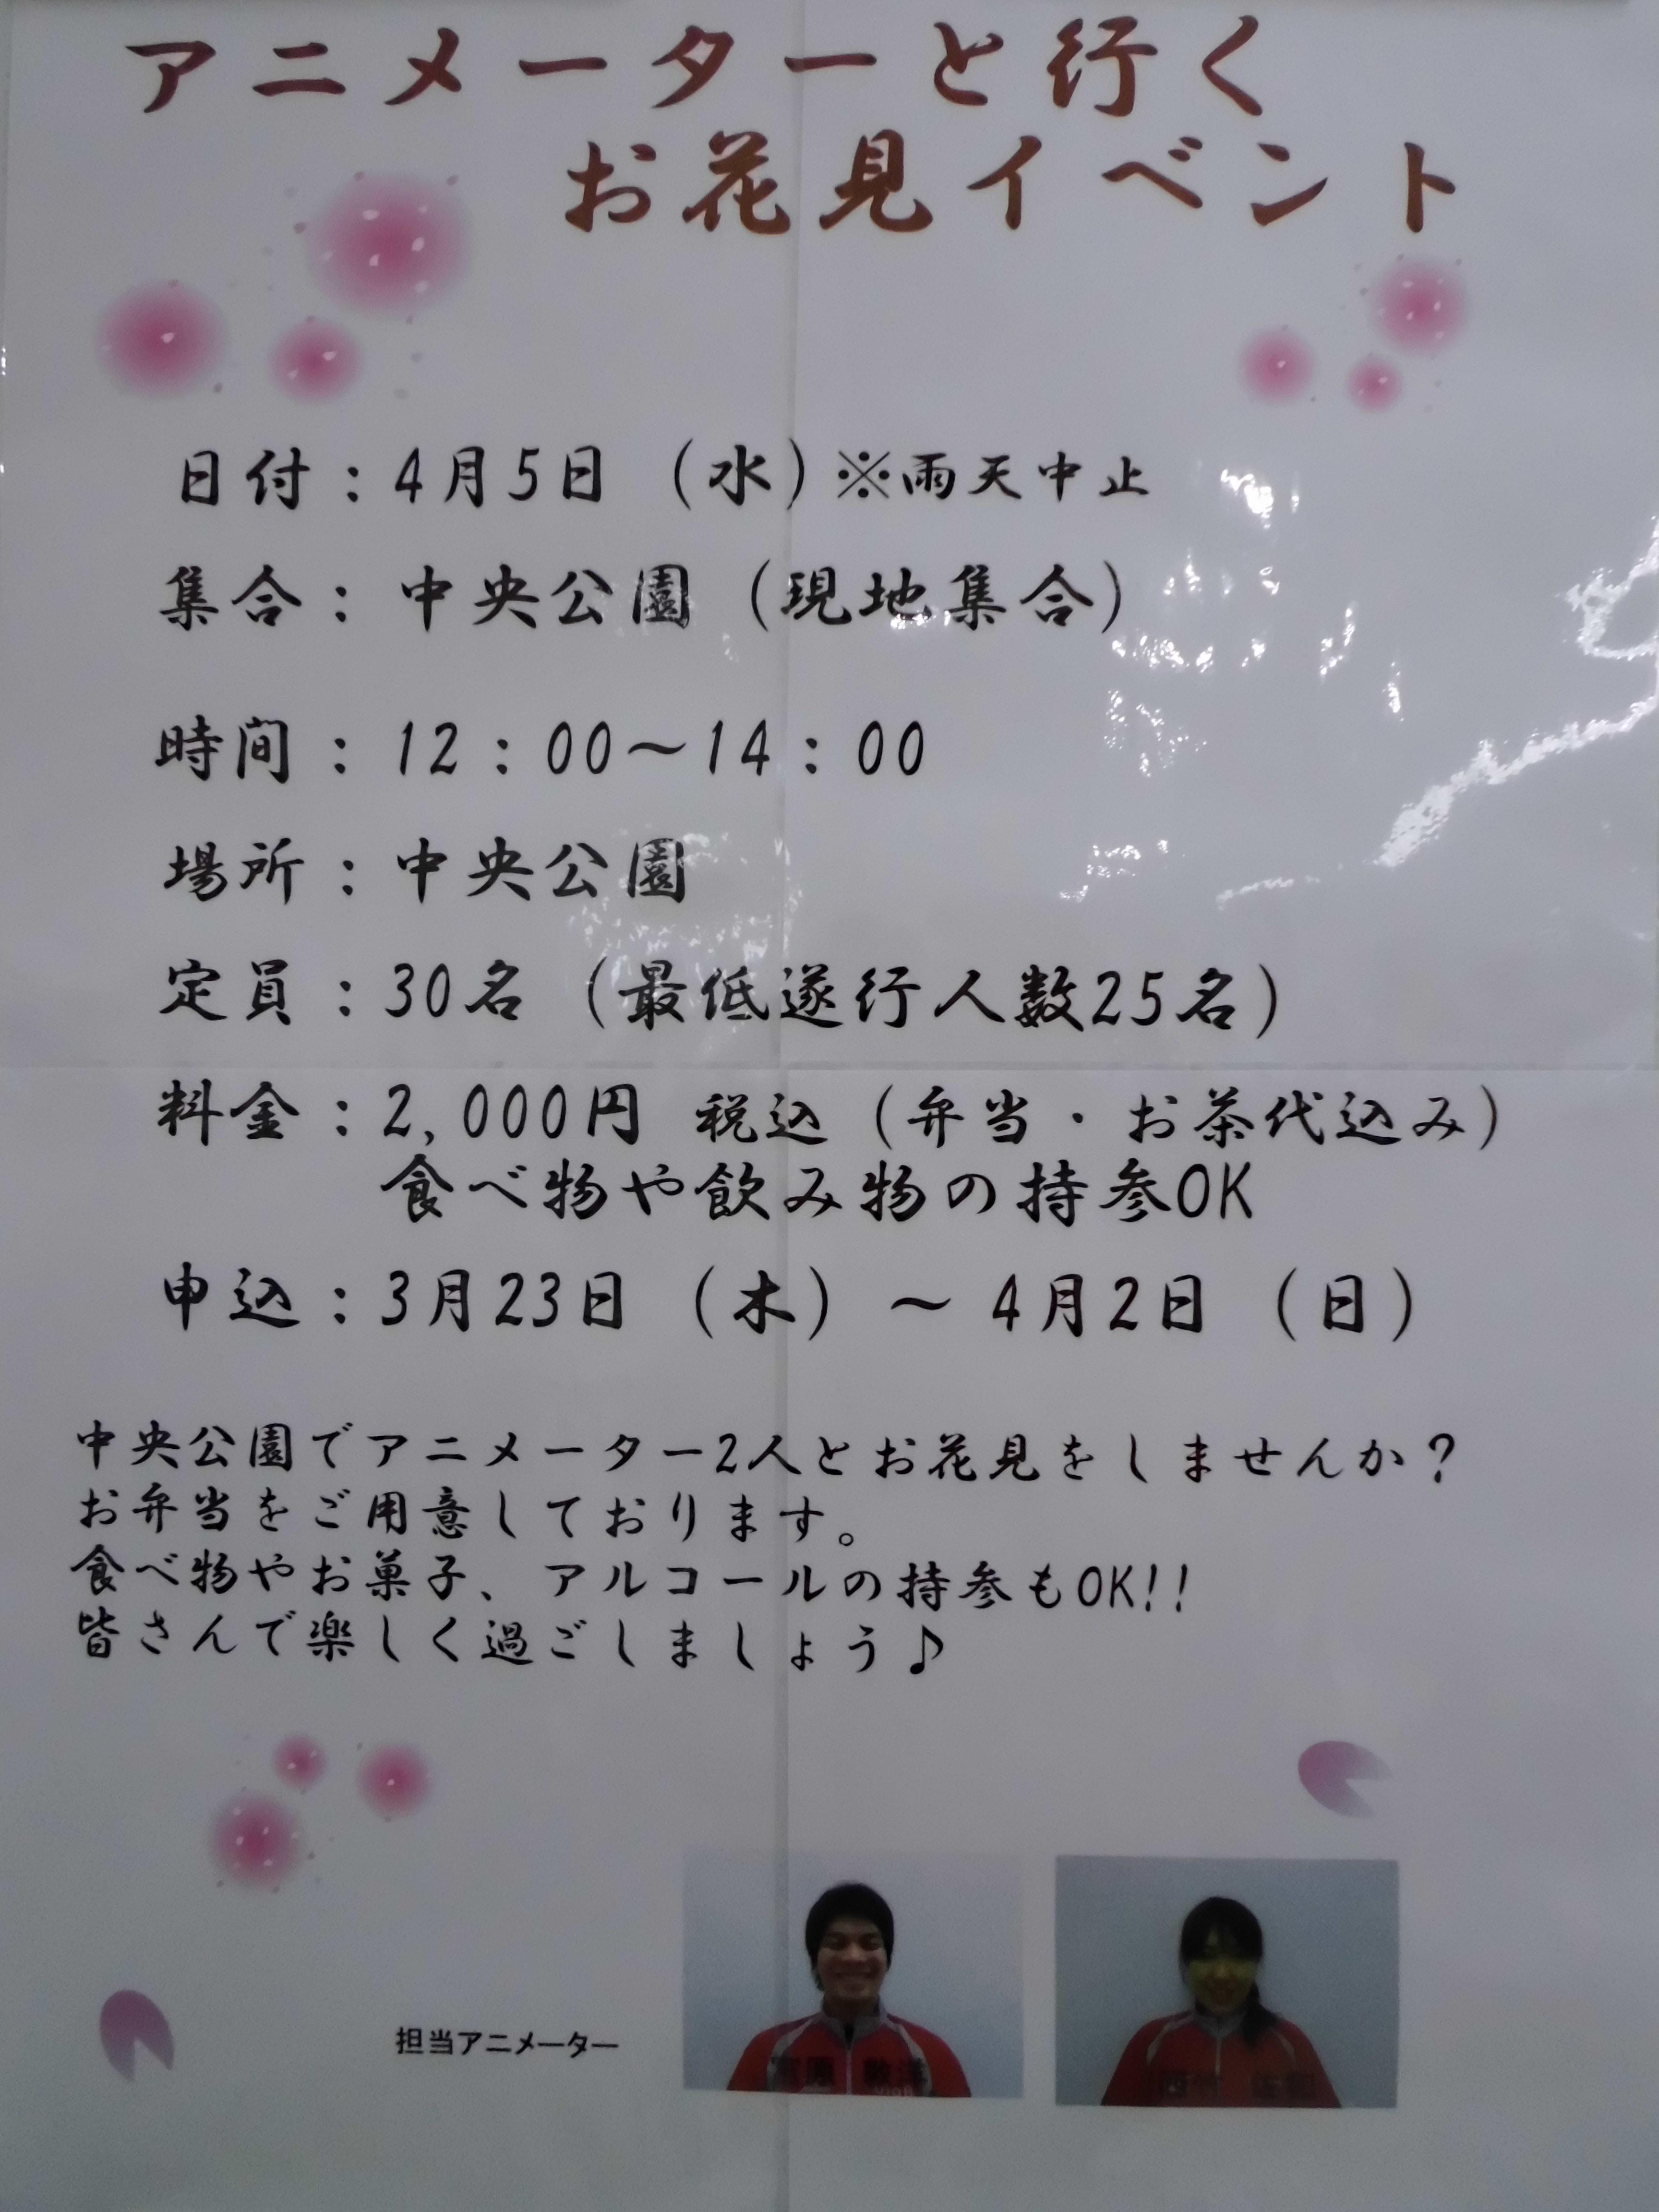 アニメーターと行く
お花見イベント
日付：4月5日（水）※雨天中止
集合：中央公園（現地集合）
時間：12：00～14：00
場所：中央公園
定員：30名（最低遂行人数25名）
料金：2,000円 税込（弁当・お茶代込み）
食べ物や飲み物の持参OK
申込：3月23日（木）～4月2日（日）
中央公園でアニメーター2人とお花見をしませんか？
お弁当をご用意しております。
食べ物やお菓子、アルコールの持参もOK!!
皆さんで楽しく過ごしましょう♪
担当アニメーター